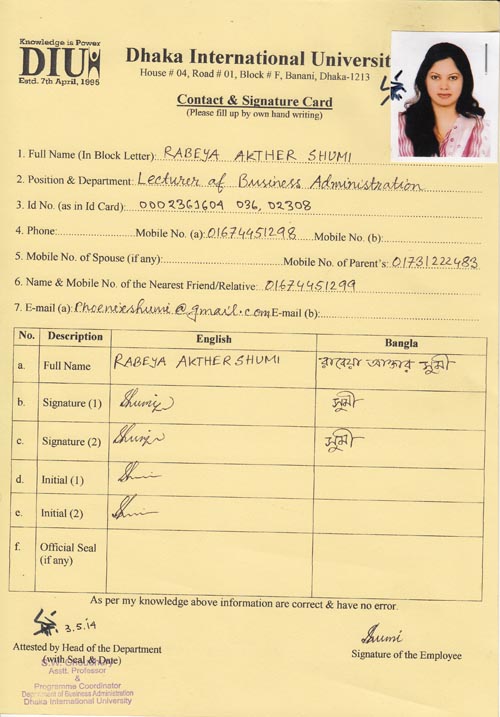 Knowledge is Power
DIU
Estd. 7th April, 1995
Dhaka International Universit
House # 04, Road # 01, Block # F, Banani, Dhaka-1213
Contact & Signature Card
(Please fill up by own hand writing)
1. Full Name (In Block Letter): RABEYA AKTHER SHUMI
2. Position & Department: Lecturer of Business Administration
3. Id No. (as in Id Card): 0002361604 036, 02308
4. Phone: Mobile No. (a): 01674451298 Mobile No. (b):
5. Mobile No. of Spouse (if any): Mobile No. of Parent's: 01731222483
6. Name & Mobile No. of the Nearest Friend/Relative: 01674451299
7. E-mail (a): Phoenixshumi@gmail.com E-mail (b):
No. Description English Bangla
a. Full Name RABEYA AKTHER SHUMI রাবেয়া আক্তার সুমী
b. Signature (1) Shumi সুমী
c. Signature (2) Shumi সুমী
d. Initial (1)
e. Initial (2)
f. Official Seal
(if any)
As per my knowledge above information are correct & have no error.
3.5.14 Shumi
Attested by Head of the Department Signature of the Employee
(with Seal & Date)
Asstt. Professor
&
Programme Coordinator
Department of Business Administration
Dhaka International University